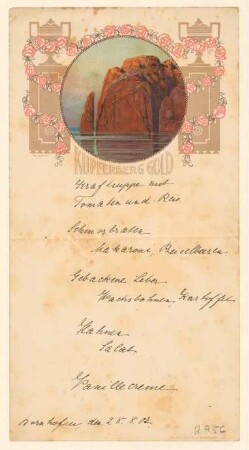 KUPFERBERG GOLD
Kraftsuppe mit
Tomaten und Reis
Schmorbraten
Makaroni, Preiselbeeren
Gebackene Leber
Wachsbohnen, Kartoffel
Hahnen
Salat
Vanillecreme
Bornhofen, den 25.8.03.